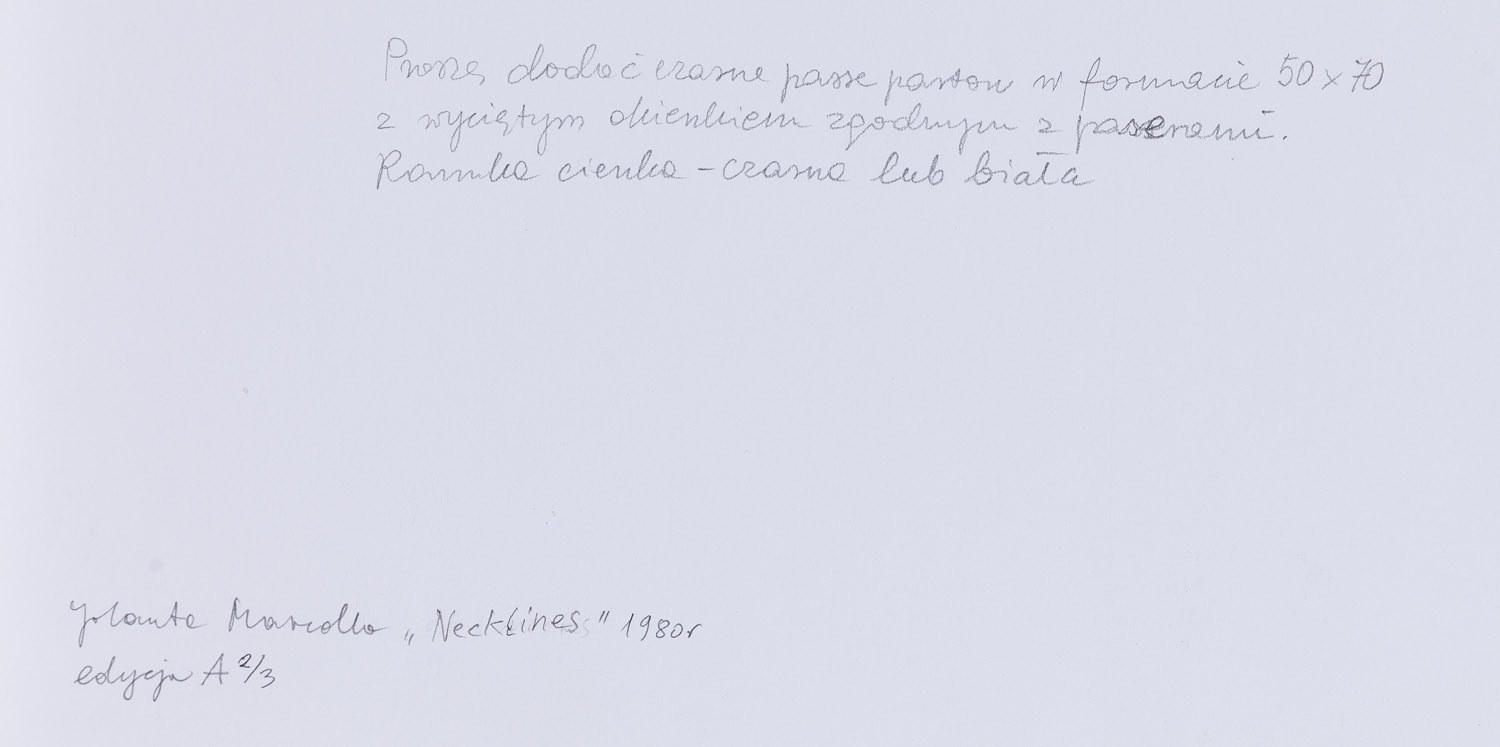 Proszę dodać czarne passe partou w formacie 50 x 70
z wyciętym okienkiem zgodnym z paserami.
Ramka cienka – czarna lub biała
Jolanta Marcolla „Necklines” 1980r
edycja A 2/3